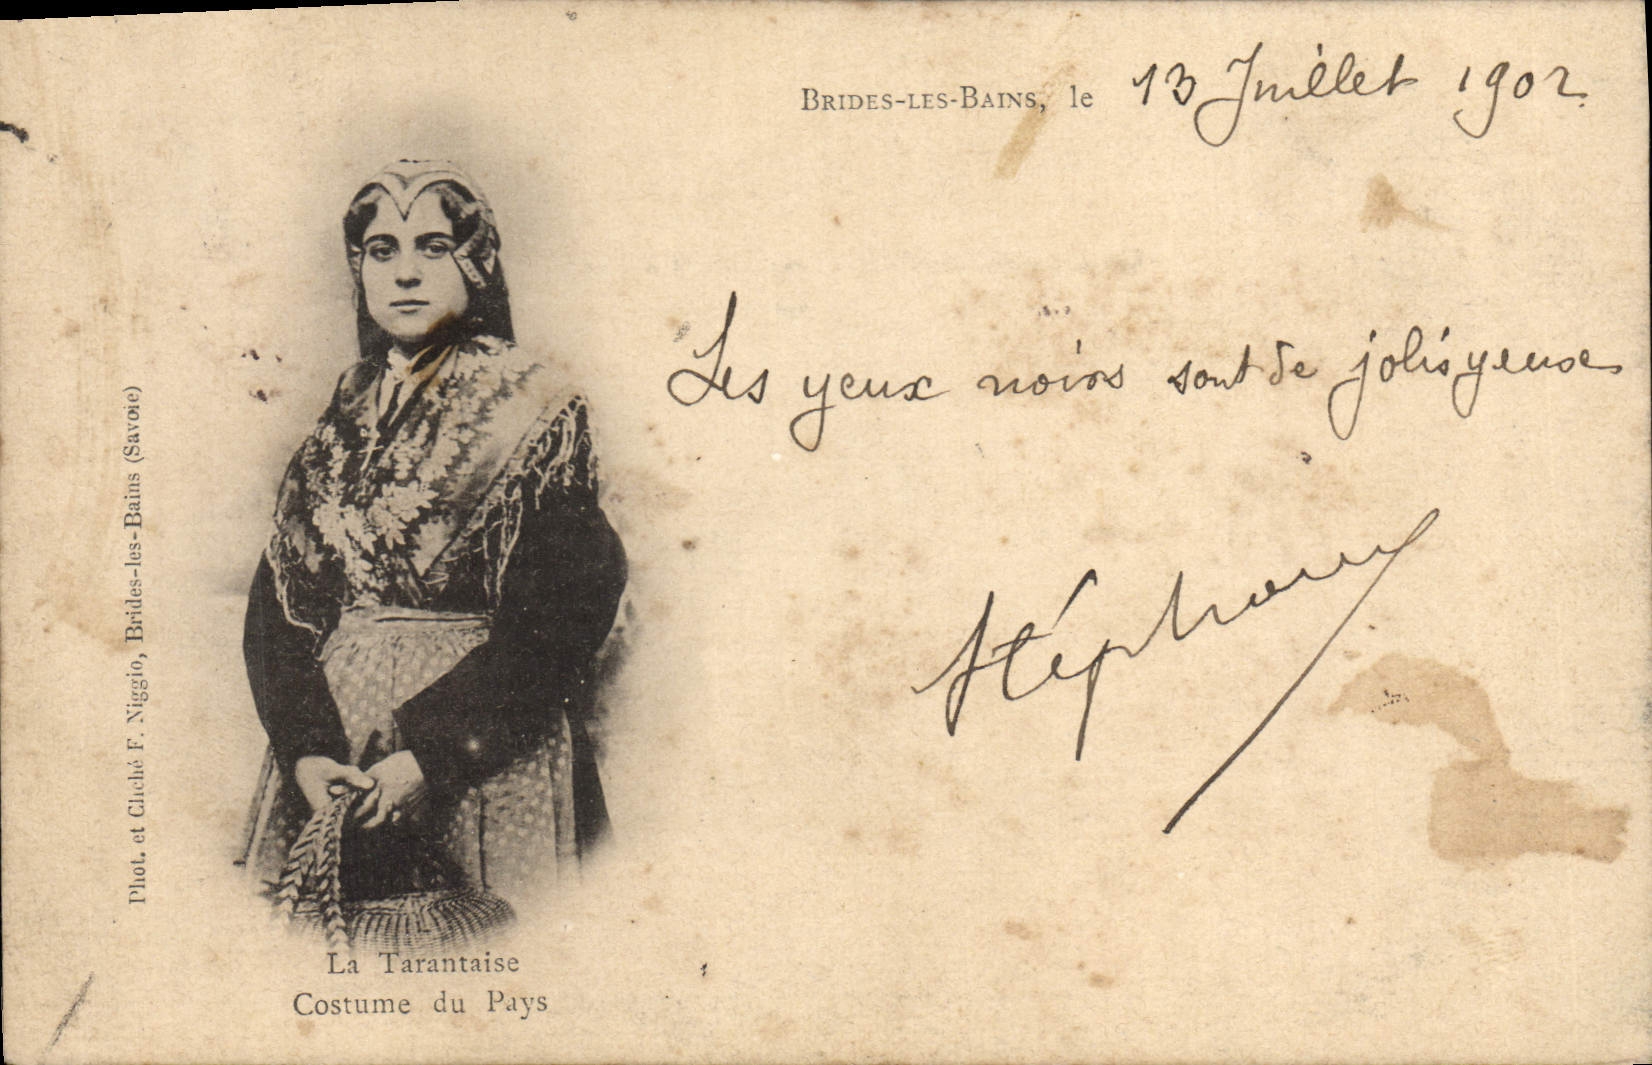 BRIDES-LES-BAINS, le 13 Juillet 1902.
Les yeux noirs sont de jolis yeux
Stéphany
Phot. et Cliché F. Niggio, Brides-les-Bains (Savoie)
La Tarantaise
Costume du Pays